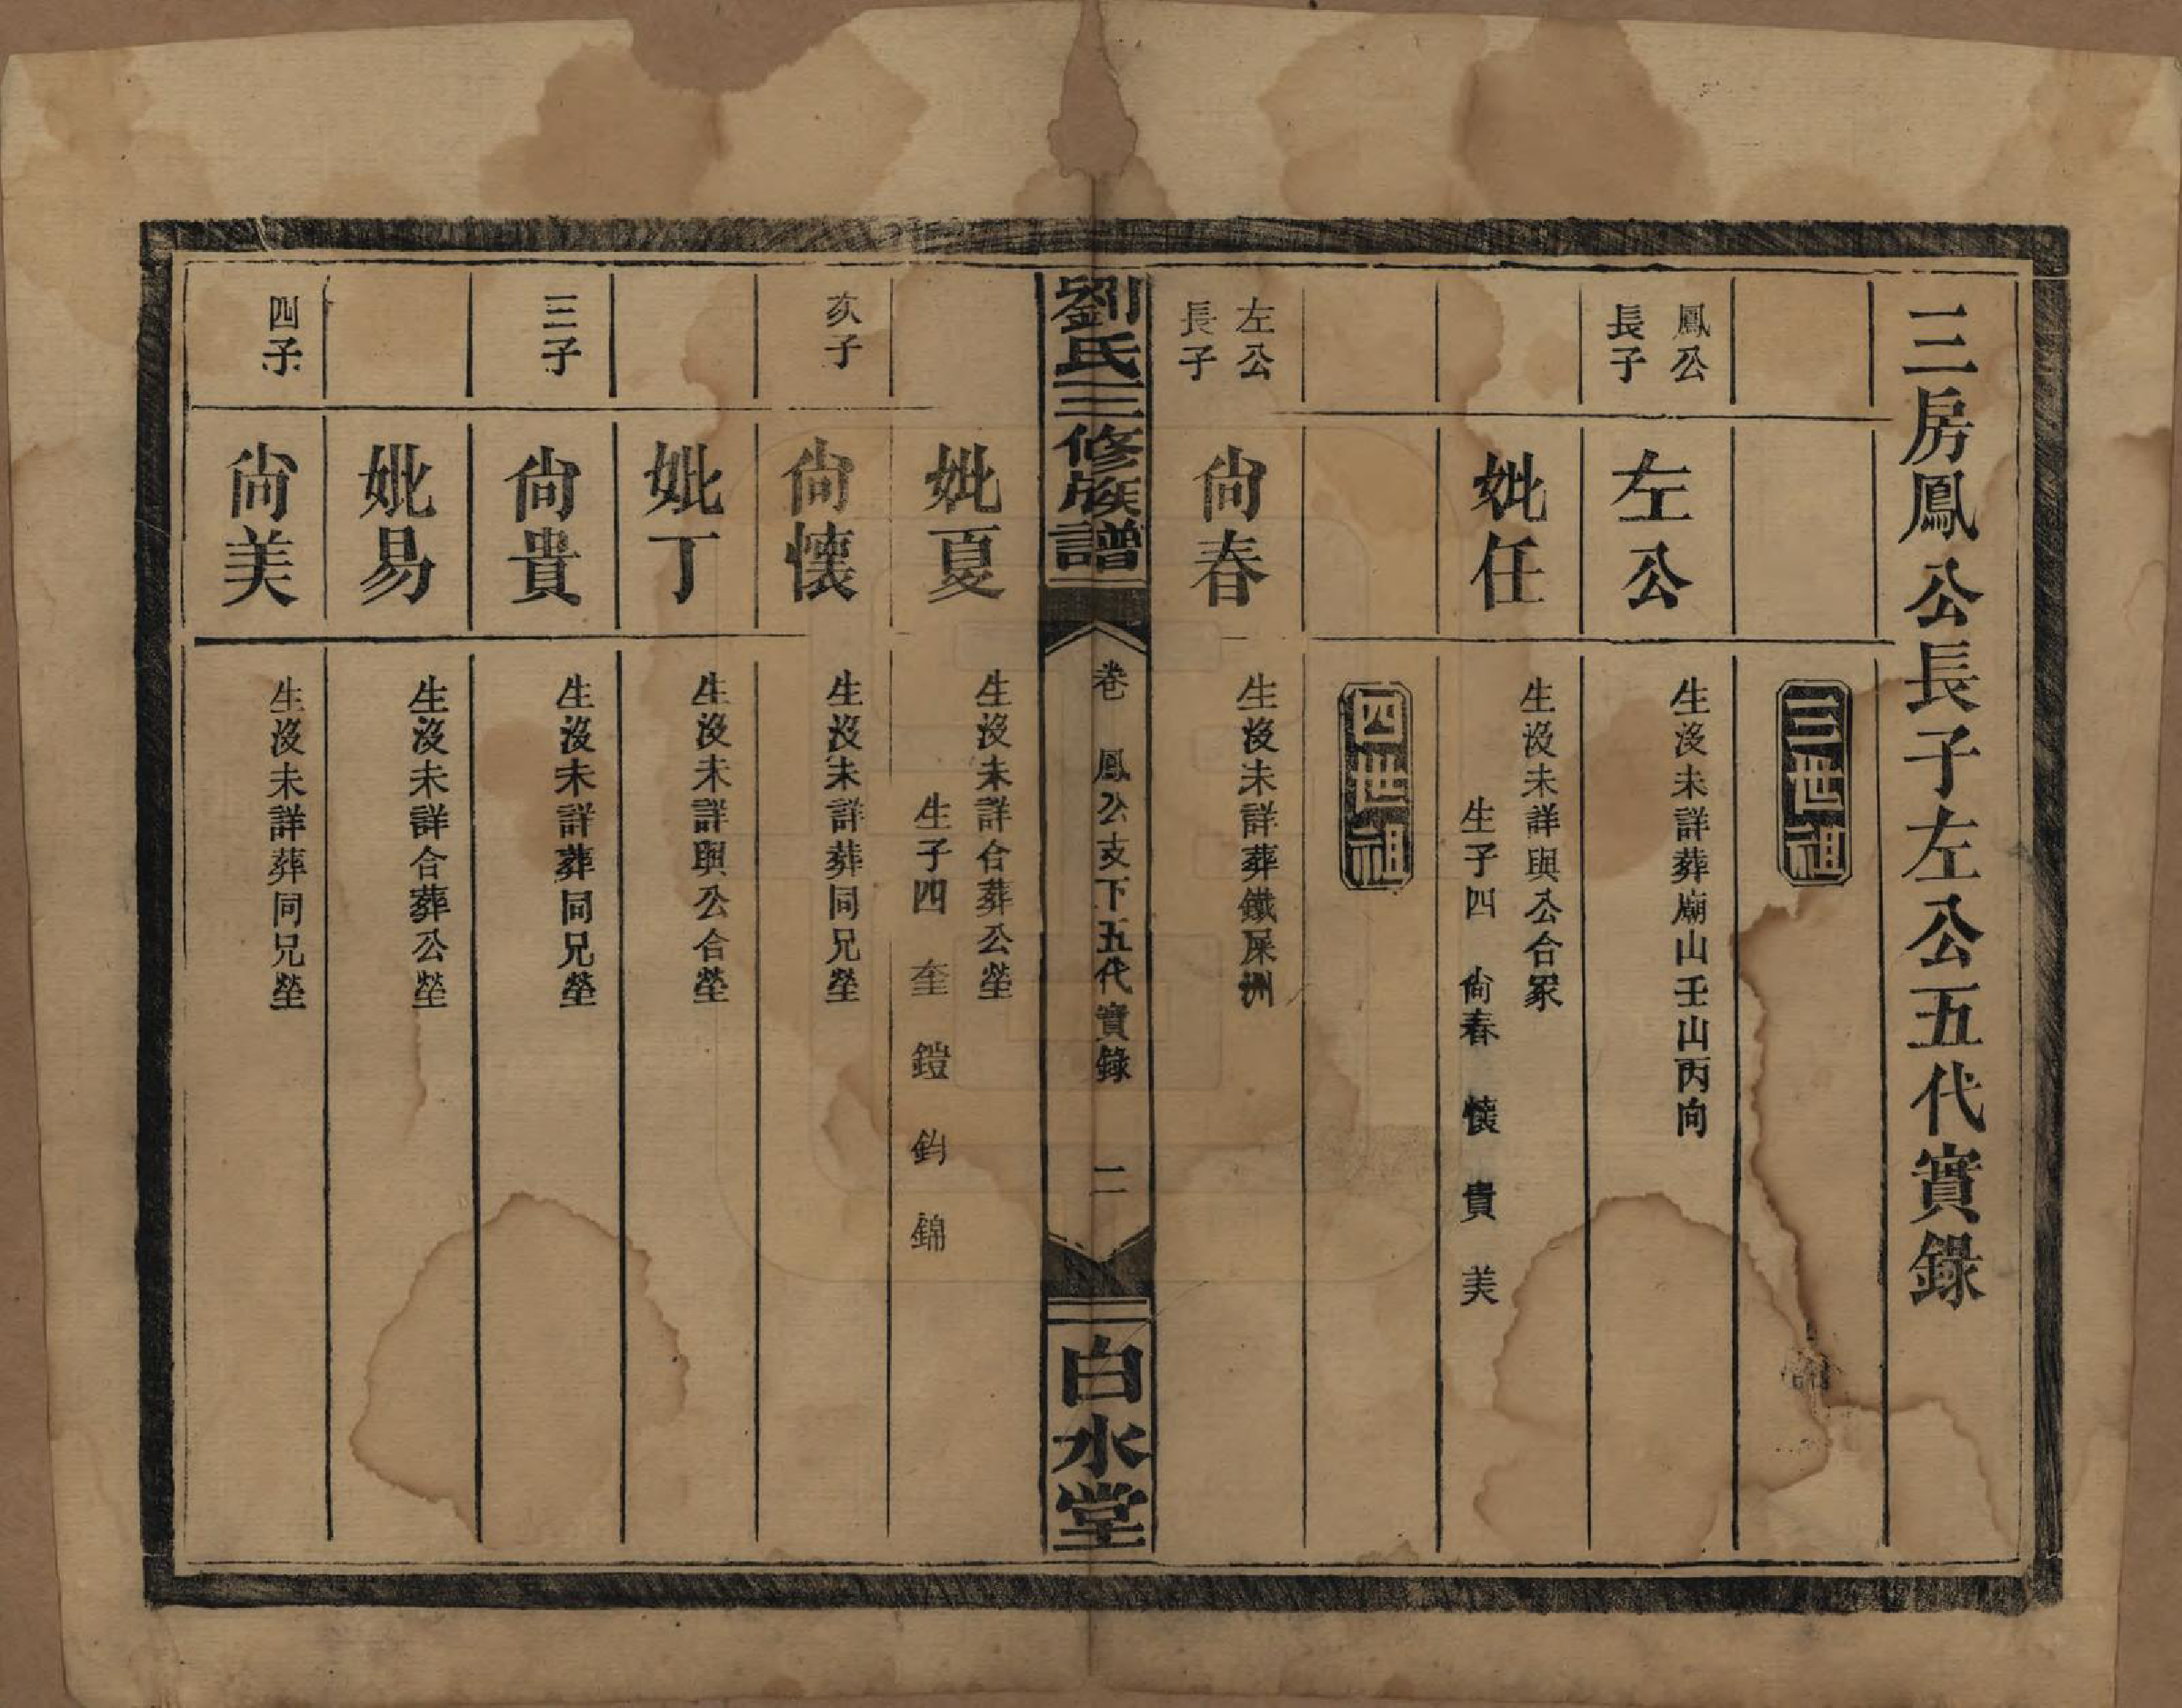 三房鳳公長子左公五代實錄
三世祖
鳳公
長子
左公
生沒未詳葬廟山壬山丙向
妣任
生沒未詳與公合冢
生子四 尙春 懷 貴 美
四世祖
左公
長子
尙春
生沒未詳葬鐵屎洲
劉氏三修族譜
卷 鳳公支下五代實錄 二
白水堂
妣夏
生沒未詳合葬公塋
生子四 奎 鎧 鈞 錦
次子
尙懷
生沒未詳葬同兄塋
妣丁
生沒未詳與公合塋
三子
尙貴
生沒未詳葬同兄塋
妣易
生沒未詳合葬公塋
四子
尙美
生沒未詳葬同兄塋